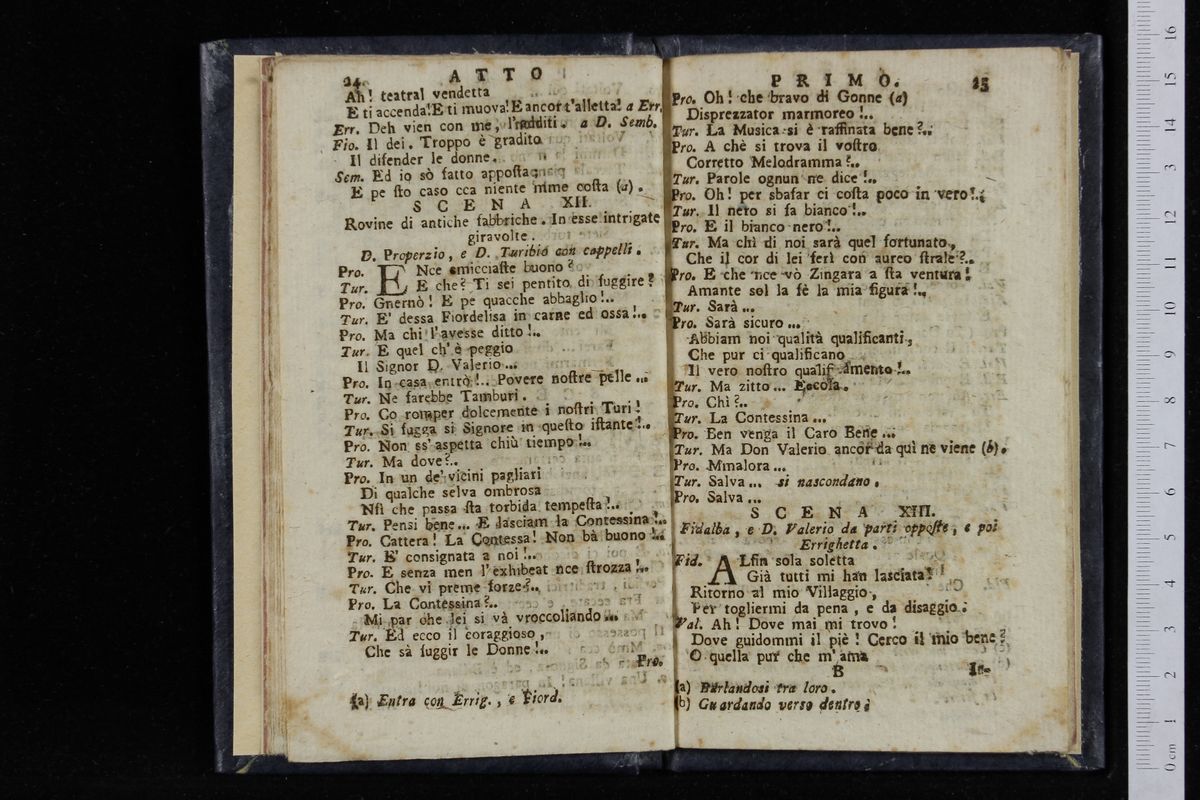 24 ATTO
Ah! teatral vendetta
E ti accenda! E ti muova! E ancor t'alletta! a Err.
Err. Deh vien con me, l'additi. a D. Semb.
Fio. Il dei. Troppo è gradito
Il difender le donne.
Sem. Ed io sò fatto apposta;
E pe sto caso cca niente mme costa (a).
SCENA XII.
Rovine di antiche fabbriche. In esse intrigate
giravolte.
D. Properzio, e D. Turibio con cappelli.
Pro. ENce smicciaste buono?
Tur. E che? Ti sei pentito di fuggire?
Pro. Gnernò! E pe quacche abbaglio!..
Tur. E' dessa Fiordelisa in carne ed ossa!..
Pro. Ma chi l'avesse ditto!..
Tur. E quel ch'è peggio
Il Signor D. Valerio...
Pro. In casa entrò!.. Povere nostre pelle...
Tur. Ne farebbe Tamburi.
Pro. Co romper dolcemente i nostri Turi!
Tur. Si fugga si Signore in questo istante!..
Pro. Non ss'aspetta chiù tiempo!..
Tur. Ma dove?..
Pro. In un de' vicini pagliari
Di qualche selva ombrosa
Nfi che passa sta torbida tempesta!..
Tur. Pensi bene... E lasciam la Contessina!..
Pro. Cattera! La Contessa! Non bà buono!..
Tur. E' consignata a noi!..
Pro. E senza men l'exhibeat nce strozza!..
Tur. Che vi preme forze?..
Pro. La Contessina?..
Mi par che lei si và vroccoliando...
Tur. Ed ecco il coraggioso,
Che sà fuggir le Donne!..
Pro.
(a) Entra con Errig., e Fiord.
PRIMO. 25
Pro. Oh! che bravo di Gonne (a)
Disprezzator marmoreo!..
Tur. La Musica si è raffinata bene?..
Pro. A chè si trova il vostro
Corretto Melodramma?..
Tur. Parole ognun ne dice!..
Pro. Oh! per sbafar ci costa poco in vero!..
Tur. Il nero si fa bianco!..
Pro. E il bianco nero!..
Tur. Ma chì di noi sarà quel fortunato,
Che il cor di lei ferì con aureo strale?..
Pro. E che nce vò Zingara a sta ventura!
Amante sol la fè la mia figura!..
Tur. Sarà...
Pro. Sarà sicuro...
Abbiam noi qualità qualificanti,
Che pur ci qualificano
Il vero nostro qualificamento!..
Tur. Ma zitto... Eccola.
Pro. Chì?..
Tur. La Contessina...
Pro. Ben venga il Caro Bene...
Tur. Ma Don Valerio ancor da quì ne viene (b).
Pro. Mmalora...
Tur. Salva... si nascondano.
Pro. Salva...
SCENA XIII.
Fidalba, e D. Valerio da parti opposte, e poi
Errighetta.
Fid. ALfin sola soletta
Già tutti mi han lasciata!
Ritorno al mio Villaggio,
Per togliermi da pena, e da disaggio.
Val. Ah! Dove mai mi trovo!
Dove guidommi il piè! Cerco il mio bene?
O quella pur che m'ama
B In-
(a) Burlandosi tra loro.
(b) Guardando verso dentro.